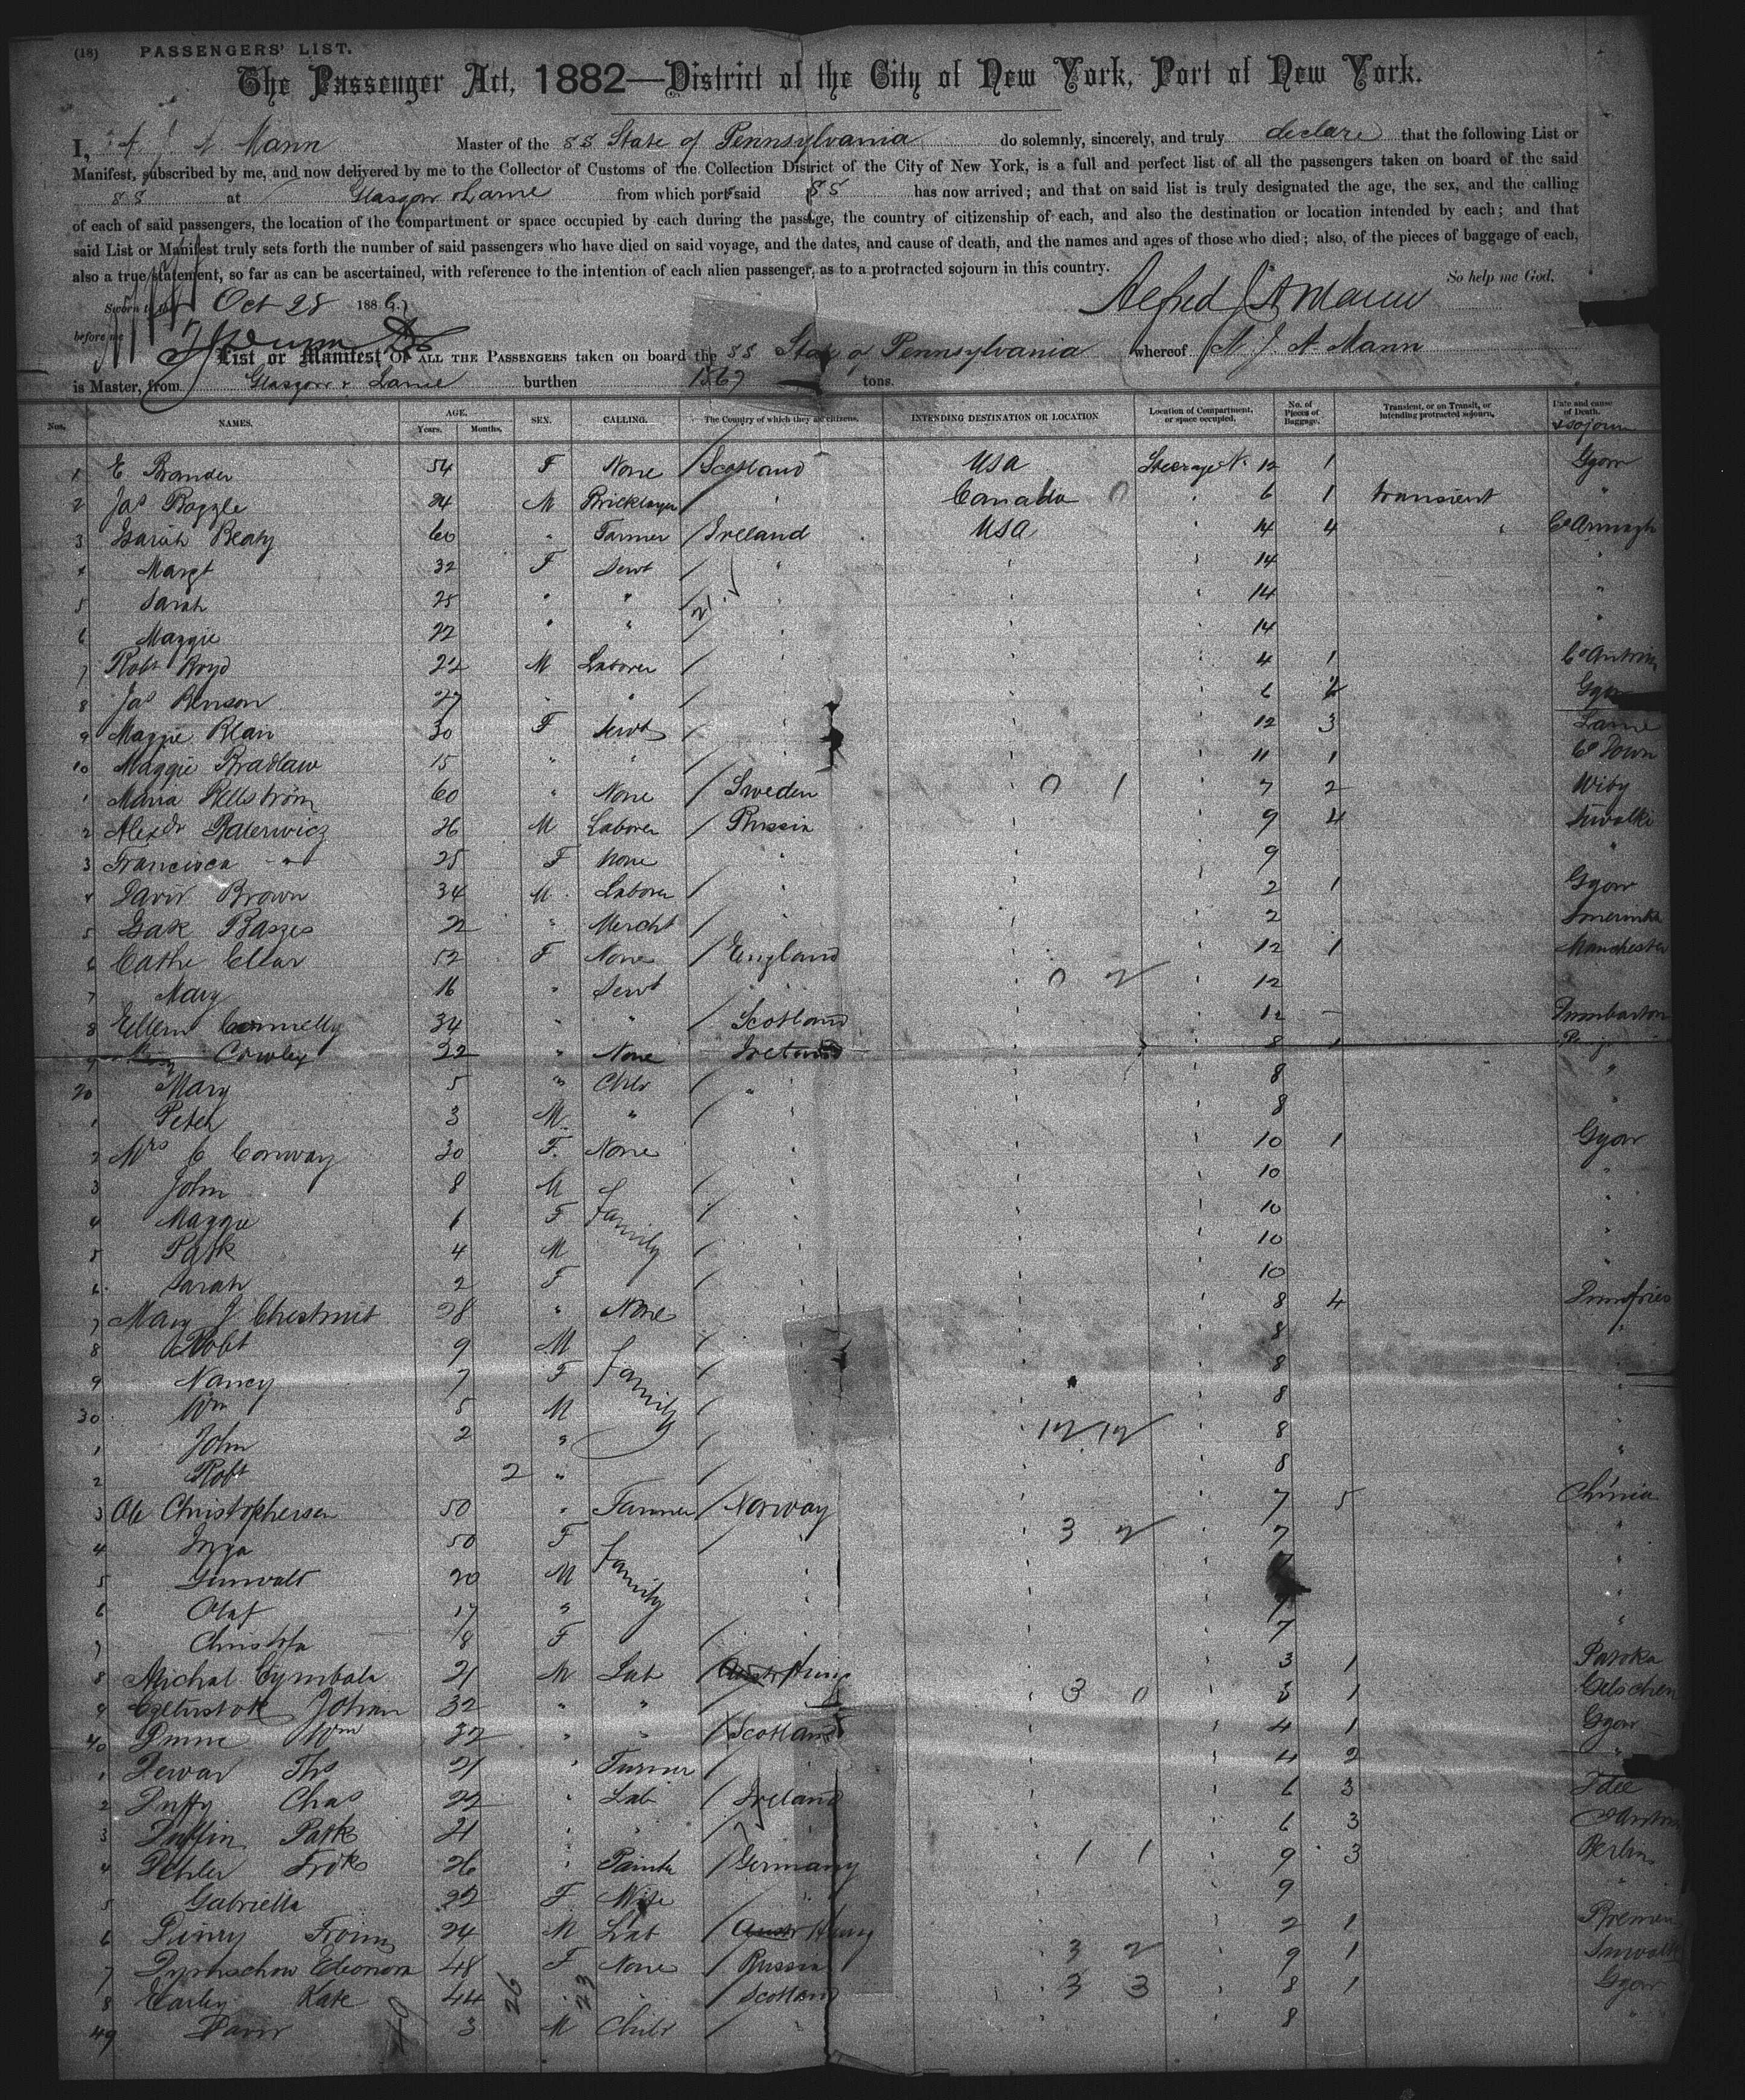 (18) PASSENGERS' LIST.
The Passenger Act, 1882—District of the City of New York, Port of New York.
I, A J A Mann Master of the SS State of Pennsylvania do solemnly, sincerely, and truly declare that the following List or
Manifest, subscribed by me, and now delivered by me to the Collector of Customs of the Collection District of the City of New York, is a full and perfect list of all the passengers taken on board of the said
SS at Glasgow & Larne from which port said SS has now arrived; and that on said list is truly designated the age, the sex, and the calling
of each of said passengers, the location of the compartment or space occupied by each during the passage, the country of citizenship of each, and also the destination or location intended by each; and that
said List or Manifest truly sets forth the number of said passengers who have died on said voyage, and the dates, and cause of death, and the names and ages of those who died; also, of the pieces of baggage of each,
also a true statement, so far as can be ascertained, with reference to the intention of each alien passenger, as to a protracted sojourn in this country. So help me God.
Sworn to this Oct 28 1886 Alfred J A Mann
before me
List or Manifest OF ALL THE PASSENGERS taken on board the SS State of Pennsylvania whereof A J A Mann
is Master, from Glasgow & Larne burthen tons.
Nos. NAMES. AGE. Years. Months. SEX. CALLING. The Country of which they are citizens. INTENDING DESTINATION OR LOCATION Location of Compartment, or space occupied. No. of Pieces of Baggage. Transient, or on Transit, or intending protracted sojourn. Date and cause of Death. & sojourn
1 E Brander 54 F None Scotland USA Steerage No 12 1 Ggow
2 Jas Boggle 24 M Bricklayer " Canada 0 6 1 transient "
3 Isaiah Beaty 60 " Farmer Ireland USA 14 4 " Co Armagh
4 Margt 32 F Servt " " 14 "
5 Sarah 25 " " " " 14 "
6 Maggie 22 " " " " 14 "
7 Robt Boyd 22 M Laborer " " 4 1 Co Antrim
8 Jas Benson 27 " " " " 6 Ggow
9 Maggie Blair 30 F Servt " " 12 3 Larne
10 Maggie Bradlaw 15 " " " " 11 1 Co Down
1 Maria Hellström 60 " None Sweden 0 1 7 2 Wiby
2 Alexdr Balerwicz 26 M Laborer Russia " 9 4 Suwalki
3 Francisca " 25 F None " " 9 "
4 David Brown 34 M Laborer " " 2 1 Ggow
5 Isak Baszes 22 " Mercht " " 2
6 Cathe Clear 52 F None England " 12 1 Manchester
7 Mary 16 " Servt " 0 2 12
8 Ellen Connelly 34 " " Scotland " 12 - Dumbarton
9 Cowley 22 " None Ireland " 8 1
20 Mary 5 " Child " " 8 "
1 Peter 3 M " " " 8 "
2 Mrs C Conway 30 F None " " 10 1 Ggow
3 John 8 M Family " " 10 "
4 Maggie 6 F " " 10 "
5 Patk 4 M " " 10 "
6 Sarah 2 F " " 10 "
7 Mary J Chestnut 28 " None " " 8 4 Dumfries
8 Robt 9 M Family " " 8 "
9 Nancy 7 F " " 8 "
30 Wm 5 M " " 8 "
1 John 2 " " 12 12 8 "
2 Robt 2 " " " 8 "
3 Ole Christophersen 50 " Farmer Norway " 7 5 Chrinia
4 Inga 50 F Family " 3 2 7 "
5 Gunvalt 20 M " " "
6 Olaf 17 " " " 7 "
7 Christofa 8 F " " 7 "
8 Michal Cymbala 21 M Lab Austr Hung " 3 1
9 Johan 32 " " " 3 0 3 1
40 Dunne Wm 32 " " Scotland " 4 1 Ggow
1 Dewar Ths 21 " Turner " " 4 2 "
2 Duffy Chas 22 " Lab Ireland " 6 3 Ddee
3 Duffin Patk 21 " " " " 6 3 Co Antrim
4 Dehler Frdk 26 " Painter Germany 1 1 9 3 Berlin
5 Gabriella 22 F Wife " " 9 "
6 Froim 24 M Lab Austr Hung " 2 1 Bremen
7 Eleonora 48 F None Russia 3 2 9 1 Suwalki
8 Earley Kate 44 " " Scotland 3 3 8 1 Ggow
49 David 3 M Child " " 8 "
26 23